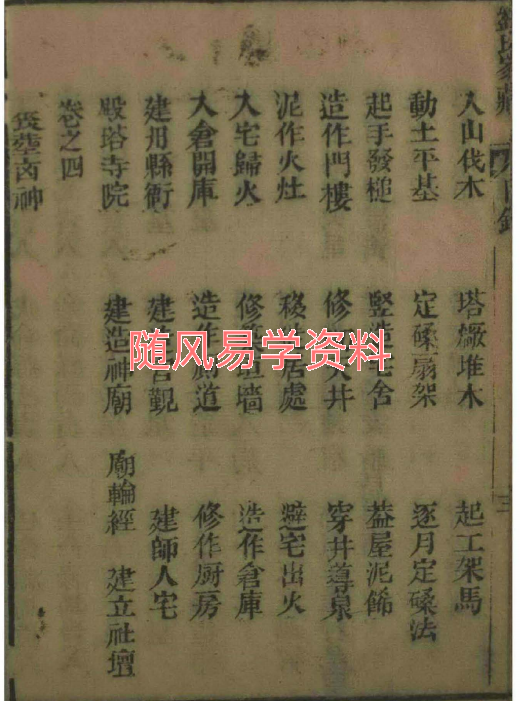 家藏
目錄
三
入山伐木 塔橛堆木 起工架馬
動土平基 定磉扇架 逐月定磉法
起手發槌 豎舍 葢屋泥餙
造作門樓 修井 穿井導泉
泥作火灶 移居處 避宅出火
入宅歸火 修墙 造作倉庫
入倉開庫 造作道 修作厨房
建州縣衙 建觀 建師人宅
殿塔寺院 建造神廟 廟輪經 建立社壇
卷之四
葬神
随风易学资料